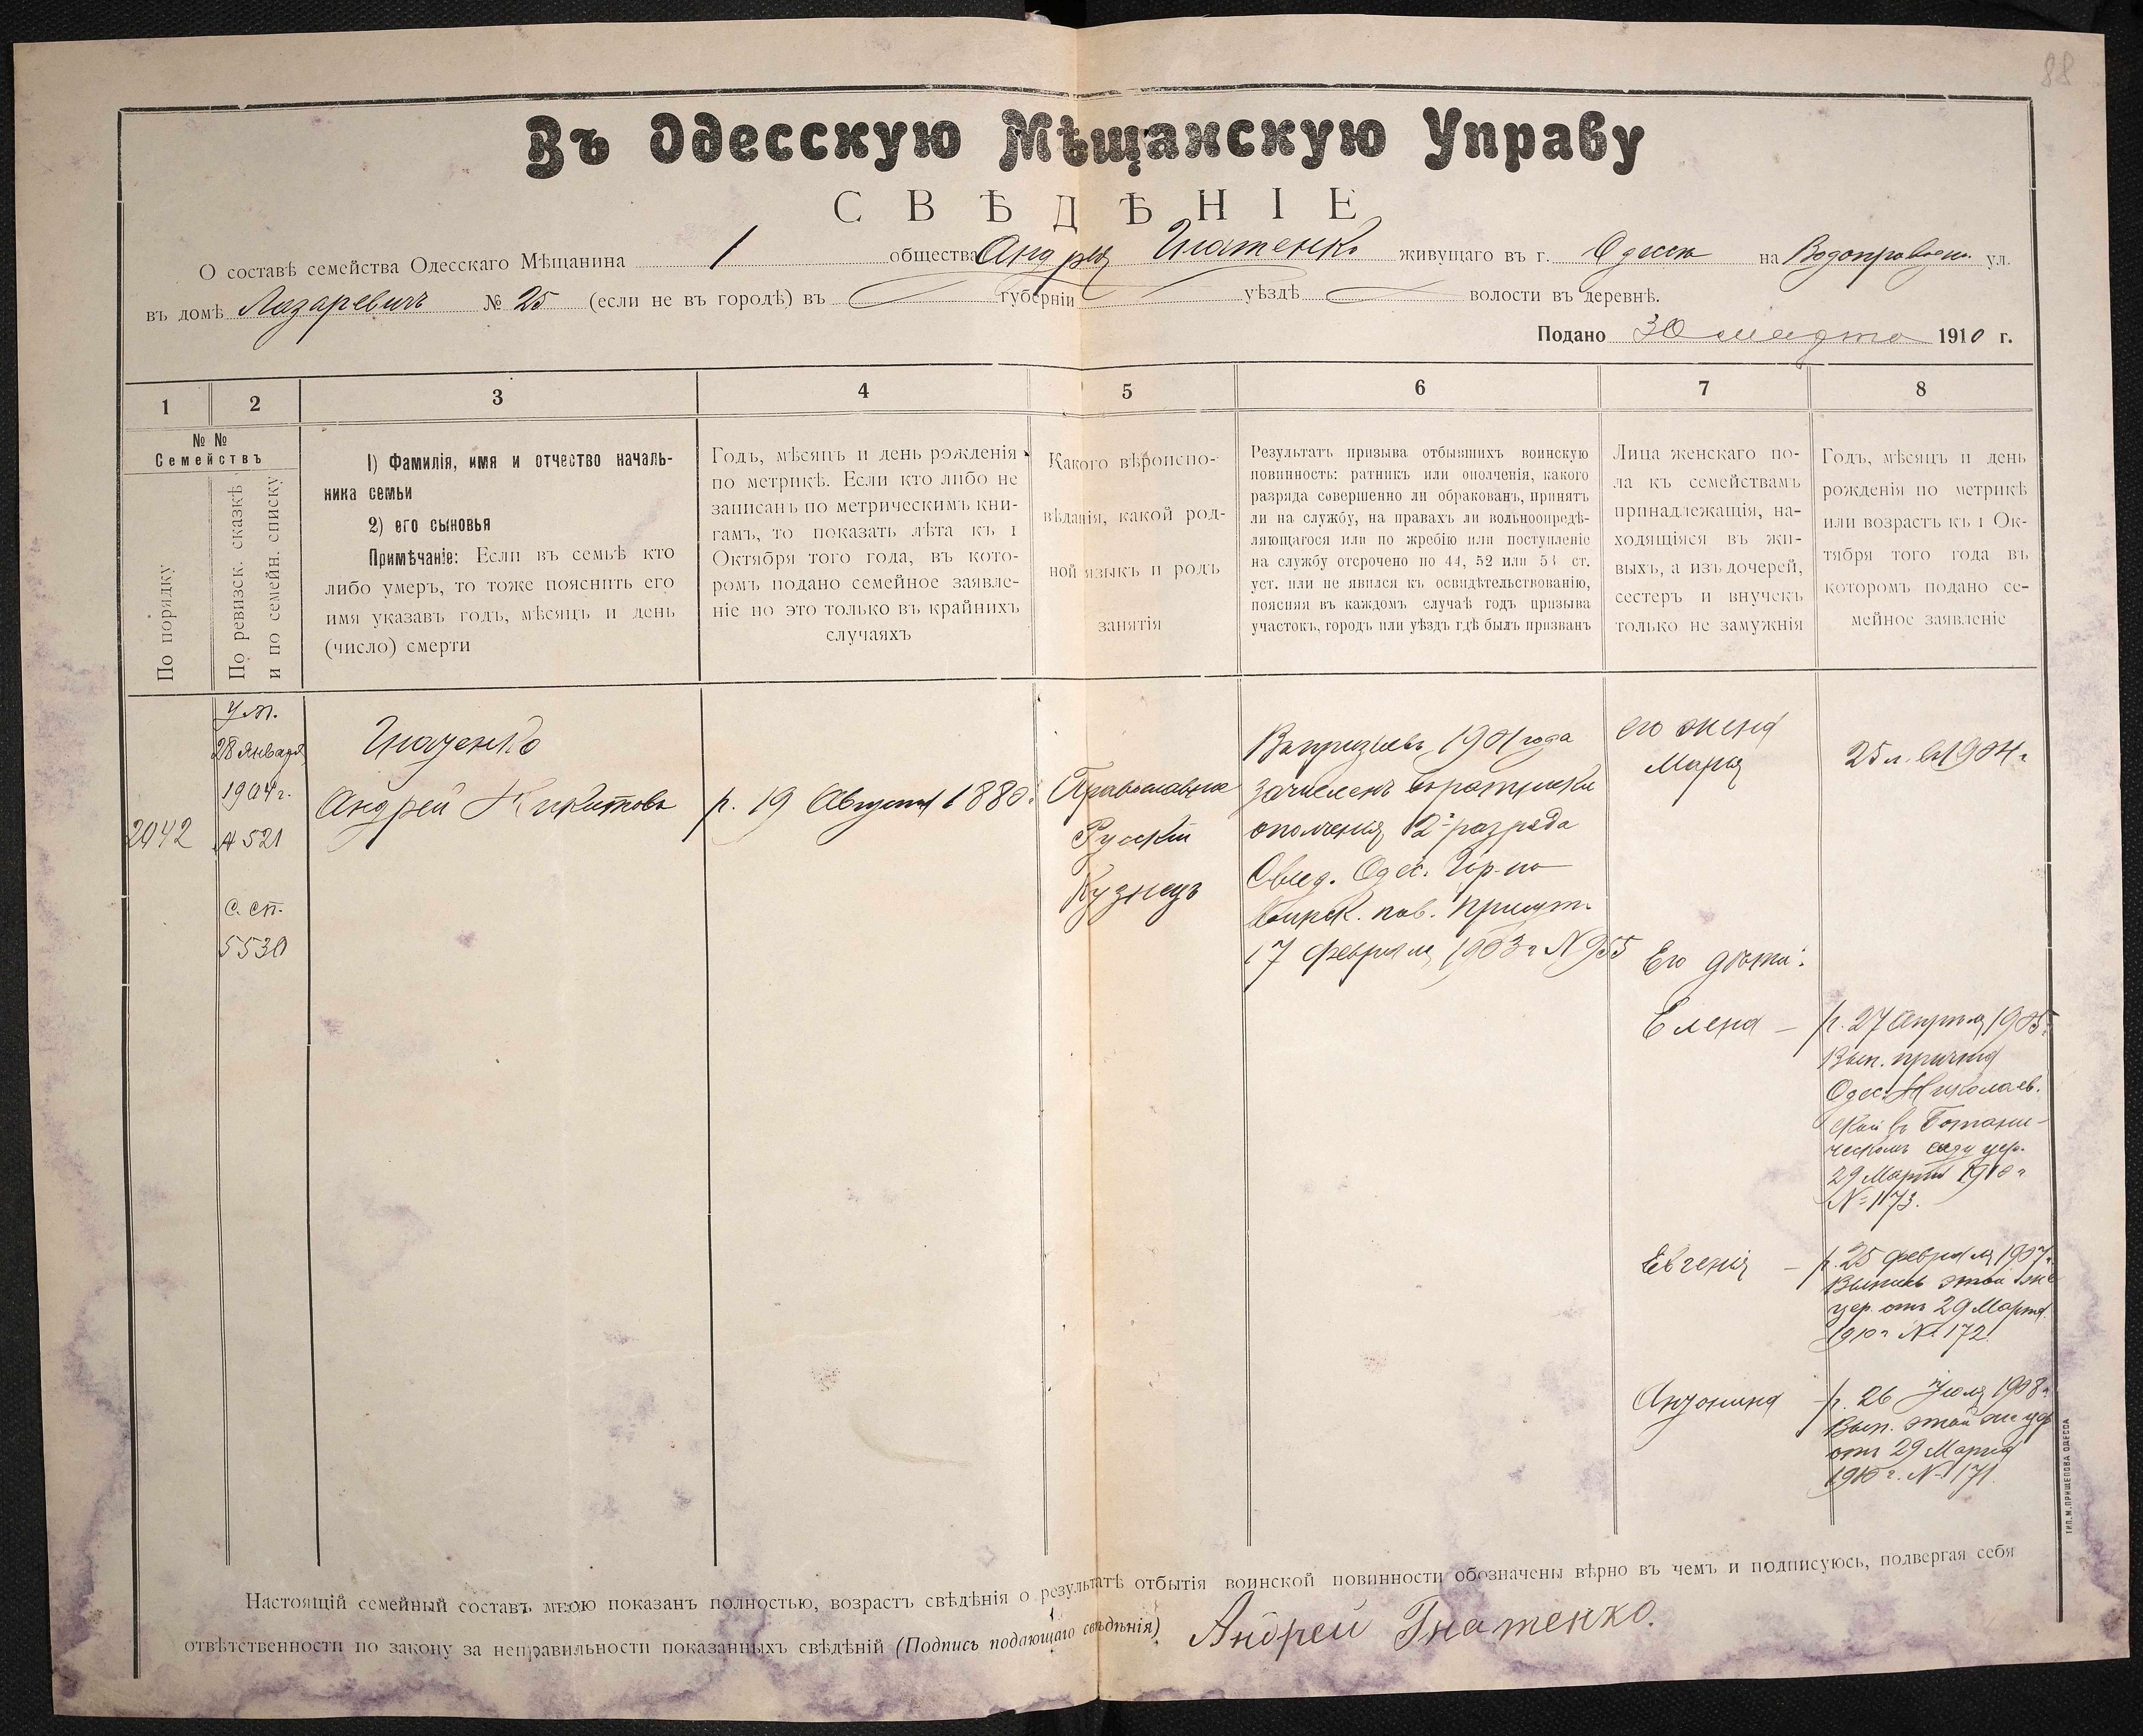 88
Въ Одесскую Мѣщанскую Управу
СВѢДѢНІЕ
О составѣ семейства Одесскаго Мѣщанина 1 общества Андрея Гнатенко живущаго въ г. Одессѣ на Водопроводн. ул.
въ домѣ Лазаревичъ № 25 (если не въ городѣ) въ губерніи уѣздѣ волости въ деревнѣ.
Подано 30 марта 1910 г.
1 2 3 4 5 6 7 8
№ №
Семействъ
По порядку
По ревизск. сказкѣ
и по семейн. списку
1) Фамилія, имя и отчество началь-
ника семьи
2) его сыновья
Примѣчаніе: Если въ семьѣ кто
либо умеръ, то тоже пояснить его
имя указавъ годъ, мѣсяцъ и день
(число) смерти
Годъ, мѣсяцъ и день рожденія
по метрикѣ. Если кто либо не
записанъ по метрическимъ кни-
гамъ, то показать лѣта къ 1
Октября того года, въ кото-
ромъ подано семейное заявле-
ніе но это только въ крайнихъ
случаяхъ
Какого вѣроиспо-
вѣданія, какой род-
ной языкъ и родъ
занятія
Результатъ призыва отбывшихъ воинскую
повинность: ратникъ или ополченія, какого
разряда совершенно ли обракованъ, принятъ
ли на службу, на правахъ ли вольноопредѣ-
ляющагося или по жребію или поступленіе
на службу отсрочено по 44, 52 или 53 ст.
уст. или не явился къ освидѣтельствованію,
поясняя въ каждомъ случаѣ годъ призыва
участокъ, городъ или уѣздъ гдѣ былъ призванъ
Лица женскаго по-
ла къ семействамъ
принадлежащія, на-
ходящіяся въ жи-
выхъ, а изъ дочерей,
сестеръ и внучекъ
только не замужнія
Годъ, мѣсяцъ и день
рожденія по метрикѣ
или возрастъ къ 1 Ок-
тября того года въ
которомъ подано се-
мейное заявленіе
2042
28 Января
1904 г.
№ 521
С. сп.
5530
Гнатенко
Андрей Никитовъ
р. 19 Августа 1880 г.
Православное
Русскій
Кузнецъ
Въ призывъ 1901 года
зачисленъ въ ратники
ополченія 2 разряда
Свид. Одес. Гор. по
воинск. пов. Присутв.
17 февраля 1903 г № 955
его жена
Марія
25 л. въ 1904 г
Его дѣти:
Елена – р. 27 Апрѣля 1905 г.
Вып. причта
Одес. Николаев.
ской въ Ботани-
ческомъ саду цер.
29 Марта 1910 г
№ 173.
Евгенія – р. 25 февраля 1907 г.
Выпись этой же
цер. отъ 29 Марта
1910 г № 172
Антонина – р. 26 Іюля 1908 г.
Вып. этой же цер
отъ 29 Марта
1910 г. № 171.
ТИП. М. ПРИЩЕПОВА ОДЕССА
Настоящій семейный составъ мною показанъ полностью, возрастъ свѣдѣнія о результатѣ отбытія воинской повинности обозначены вѣрно въ чемъ и подписуюсь, подвергая себя
отвѣтственности по закону за неправильности показанныхъ свѣдѣній (Подпись подающаго свѣдѣнія) Андрей Гнатенко.